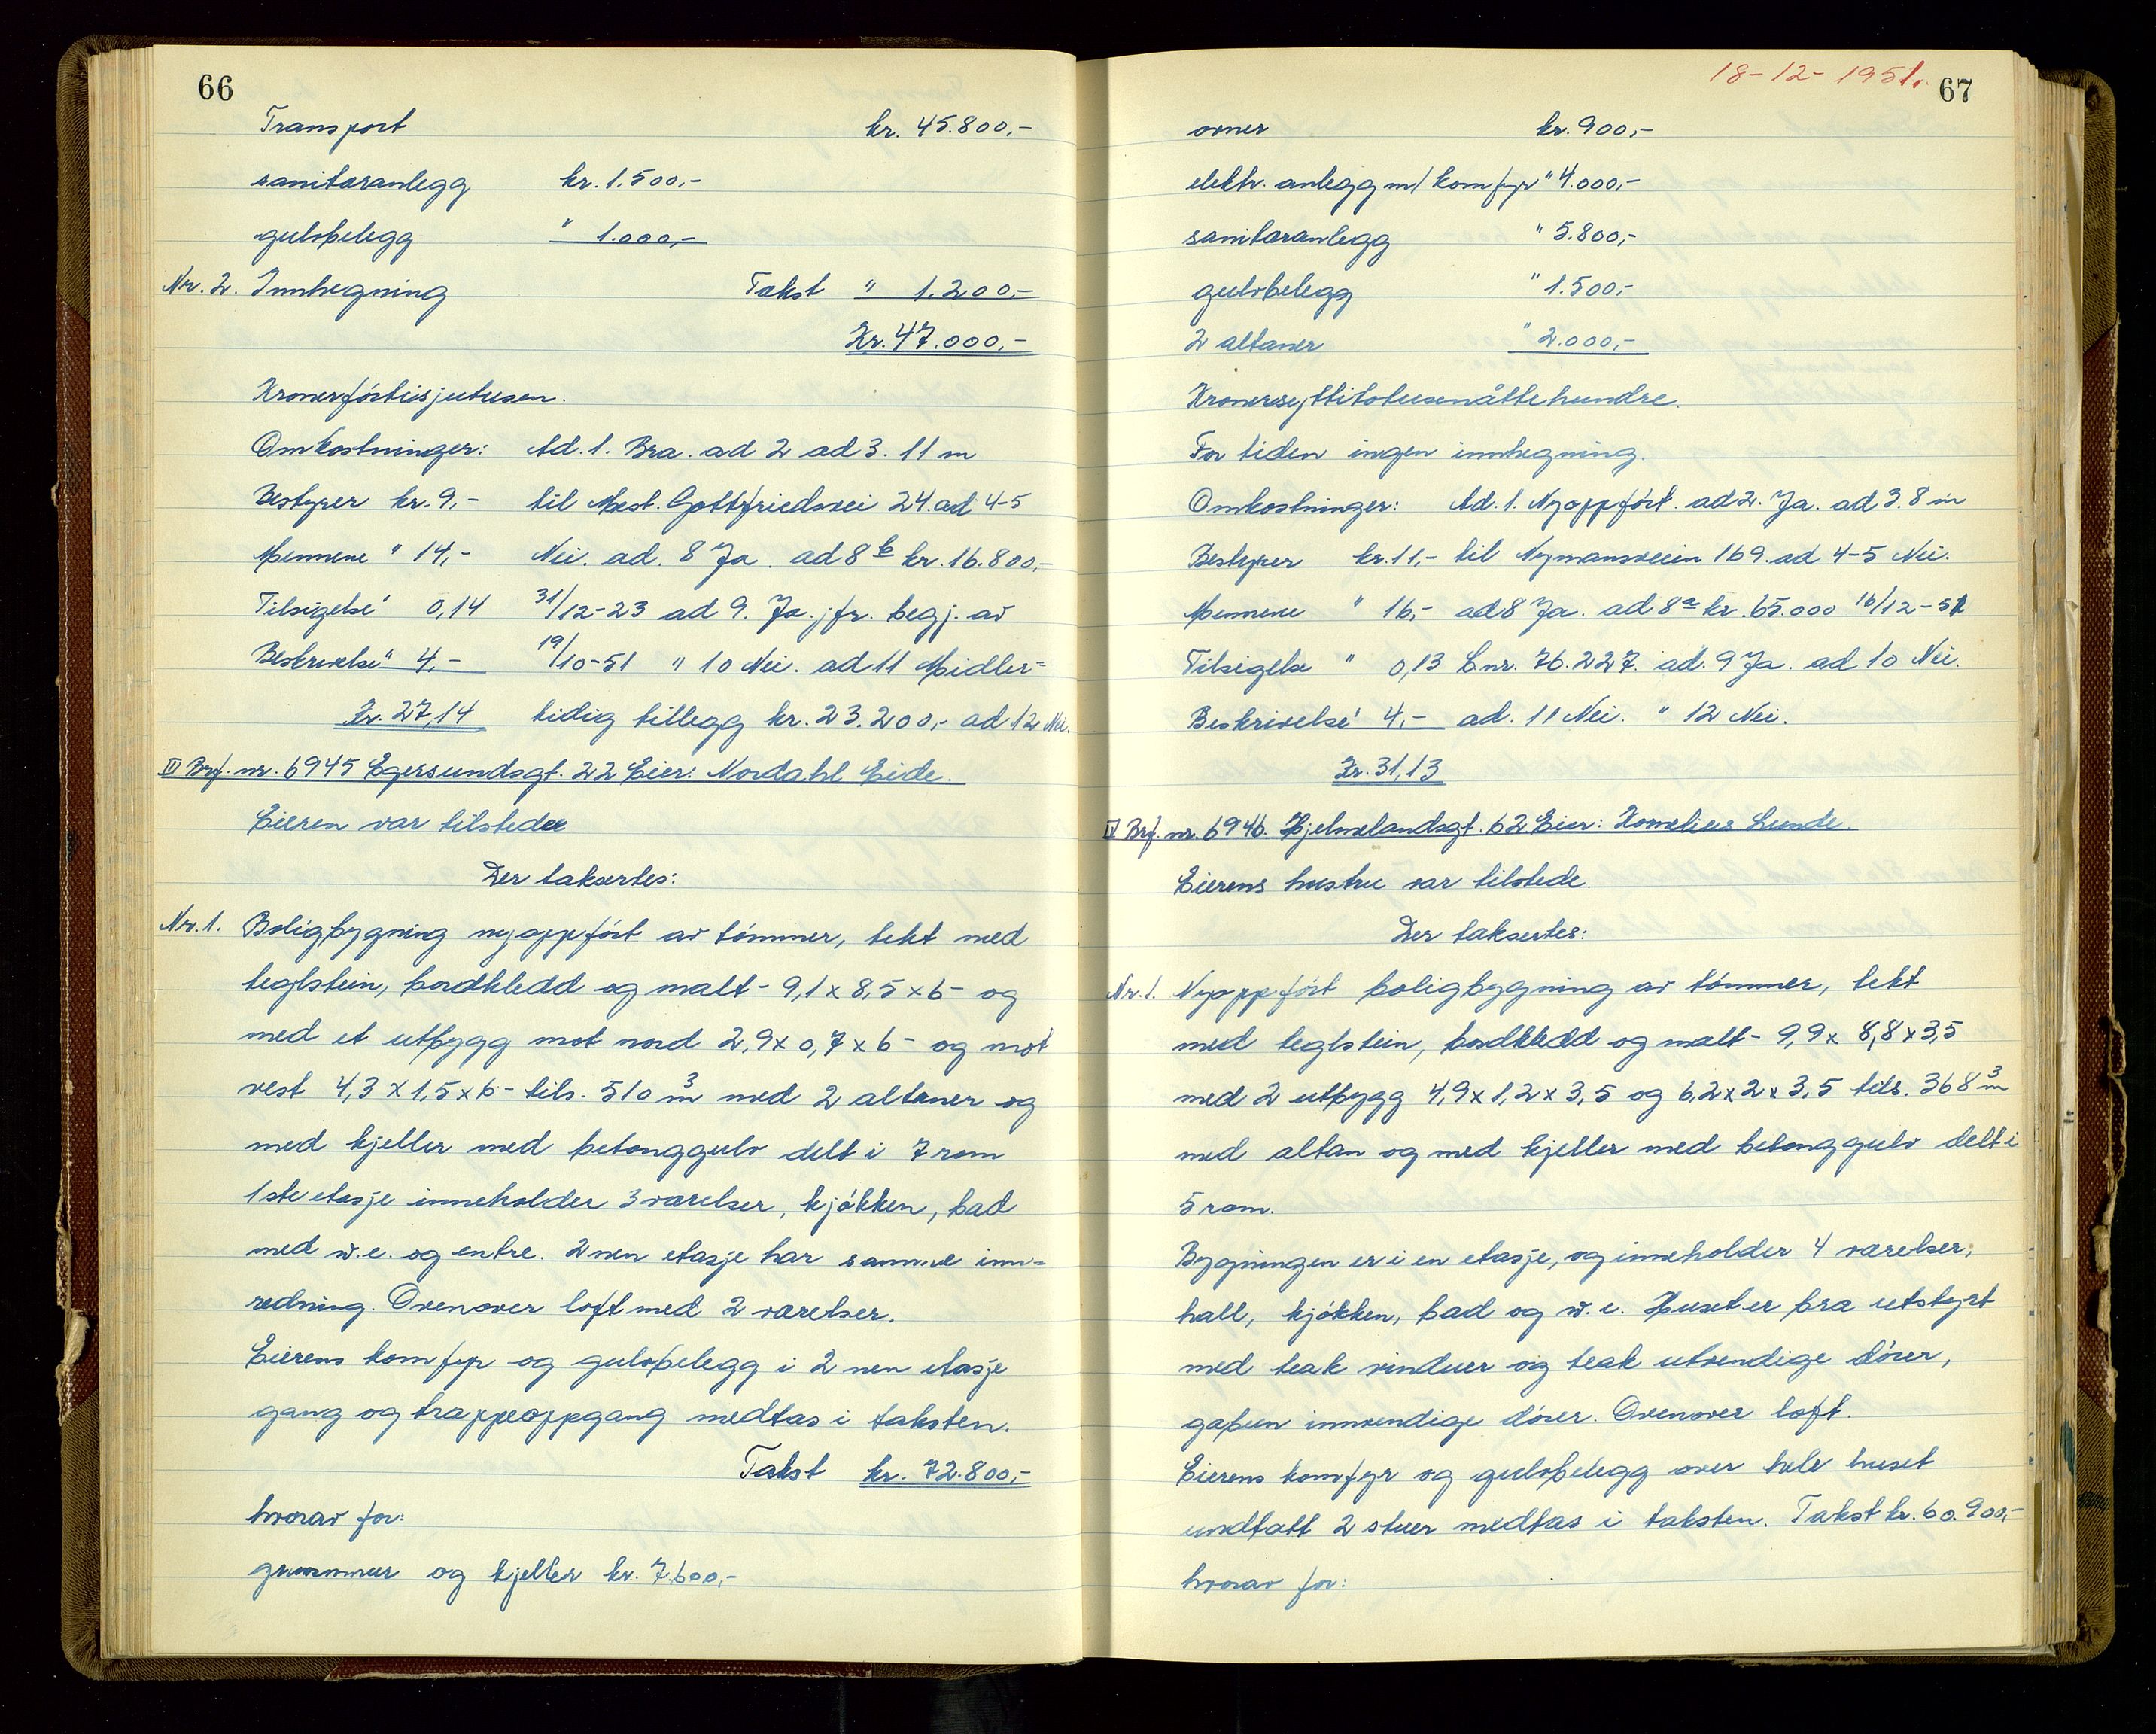 66
Transport kr. 45.800,-
sanitæranlegg kr. 1.500,-
gulvbelegg " 1.000,-
Nr. 2. Innhegning Takst " 1.200,-
Kr. 47.000,-
Kronerførtisjutusen.
Omkostninger: Ad. 1. Bra. ad 2 ad 3. 11 m
Bestyrer kr. 9,- til Mest. Gottfriedsvei 24. ad 4-5
Mennene " 14,- Nei. ad. 8 Ja. ad 8 b kr. 16.800,-
Tilsigelse " 0,14 31/12-23 ad 9. Ja. jfr. begj. av
Beskrivelse " 4,- 19/10-51 " 10 Nei. ad 11 Midler=
Kr. 27,14 tidig tillegg kr. 23.200,- ad 12 Nei.
III Brf. nr. 6945 Egersundsgt. 22 Eier: Nordahl Eide.
Eieren var tilstede
Der taksertes:
Nr. 1. Boligbygning nyoppført av tømmer, tekt med
teglstein, bordkledd og malt - 9,1 x 8,5 x 6 - og
med et utbygg mot nord 2,9 x 0,7 x 6 - og mot
vest 4,3 x 1,5 x 6 - tils. 510 m3 med 2 altaner og
med kjeller med betonggulv delt i 7 rom
1ste etasje inneholder 3 værelser, kjøkken, bad
med w.c. og entre. 2nen etasje har samme inn=
redning. Ovenover loft med 2 værelser.
Eierens komfyr og gulvbelegg i 2nen etasje
gang og trappeoppgang medtas i taksten.
Takst kr. 72.800,-
hvorav for:
grunnmur og kjeller kr. 7.600,-
18-12-1951.
67
ovner kr. 900,-
elektr. anlegg m/ komfyr " 4.000,-
sanitæranlegg " 5.800,-
gulvbelegg " 1.500,-
2 altaner " 2.000,-
Kronersyttitotusenåttehundre.
For tiden ingen innhegning.
Omkostninger: Ad. 1. Nyoppført. ad 2. Ja. ad 3. 8 m
Bestyrer kr. 11,- til Nymansveien 169. ad 4-5 Nei.
Mennene " 16,- ad 8 Ja. ad 8 a kr. 65.000 16/12-51
Tilsigelse " 0,13 Lnr. 76.227. ad. 9 Ja. ad 10 Nei.
Beskrivelse " 4,- ad. 11 Nei. " 12 Nei.
Kr. 31,13
IV Brf. nr. 6946. Hjelmelandsgt. 62 Eier: Kornelius Lunde.
Eierens hustru var tilstede.
Der taksertes:
Nr. 1. Nyoppført boligbygning av tømmer, tekt
med teglstein, bordkledd og malt - 9,9 x 8,8 x 3,5
med 2 utbygg 4,9 x 1,2 x 3,5 og 6,2 x 2 x 3,5 tils. 368 m3
med altan og med kjeller med betonggulv delt i
5 rom.
Bygningen er i en etasje, og inneholder 4 værelser,
hall, kjøkken, bad og w.c. Huset er bra utstyrt
med teak vinduer og teak utvendige dører,
gabun innvendige dører. Ovenover loft.
Eierens komfyr og gulvbelegg over hele huset
undtatt 2 stuer medtas i taksten. Takst kr. 60.900,-
hvorav for: